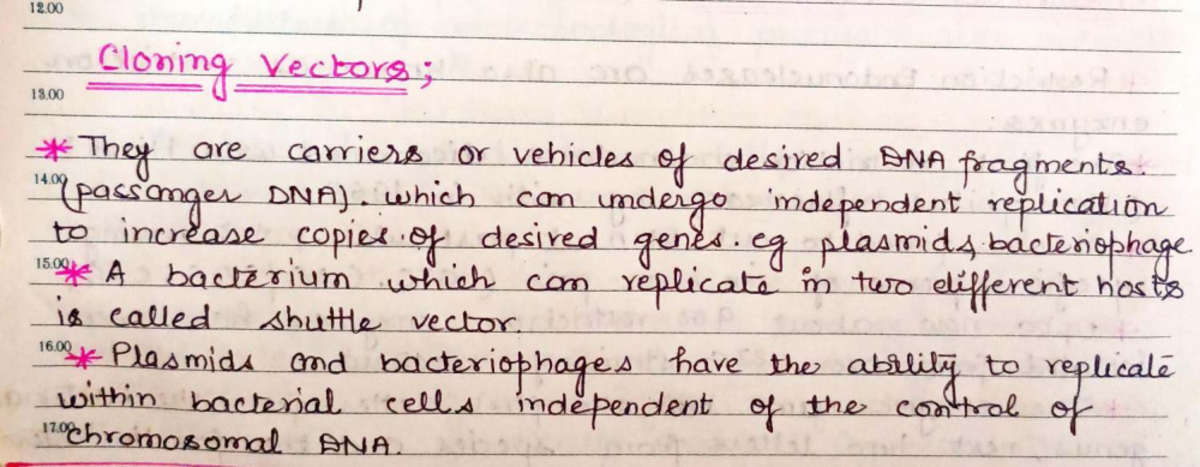 12.00
Cloning Vectors;
13.00
* They are carriers or vehicles of desired DNA fragments.
14.00 (passanger DNA) which can undergo independent replication
to increase copies of desired genes. eg plasmids, bacteriophage.
15.00 * A bacterium which can replicate in two different hosts
is called shuttle vector.
16.00 * Plasmids and bacteriophages have the ability to replicate
within bacterial cells independent of the control of
17.00 chromosomal DNA.